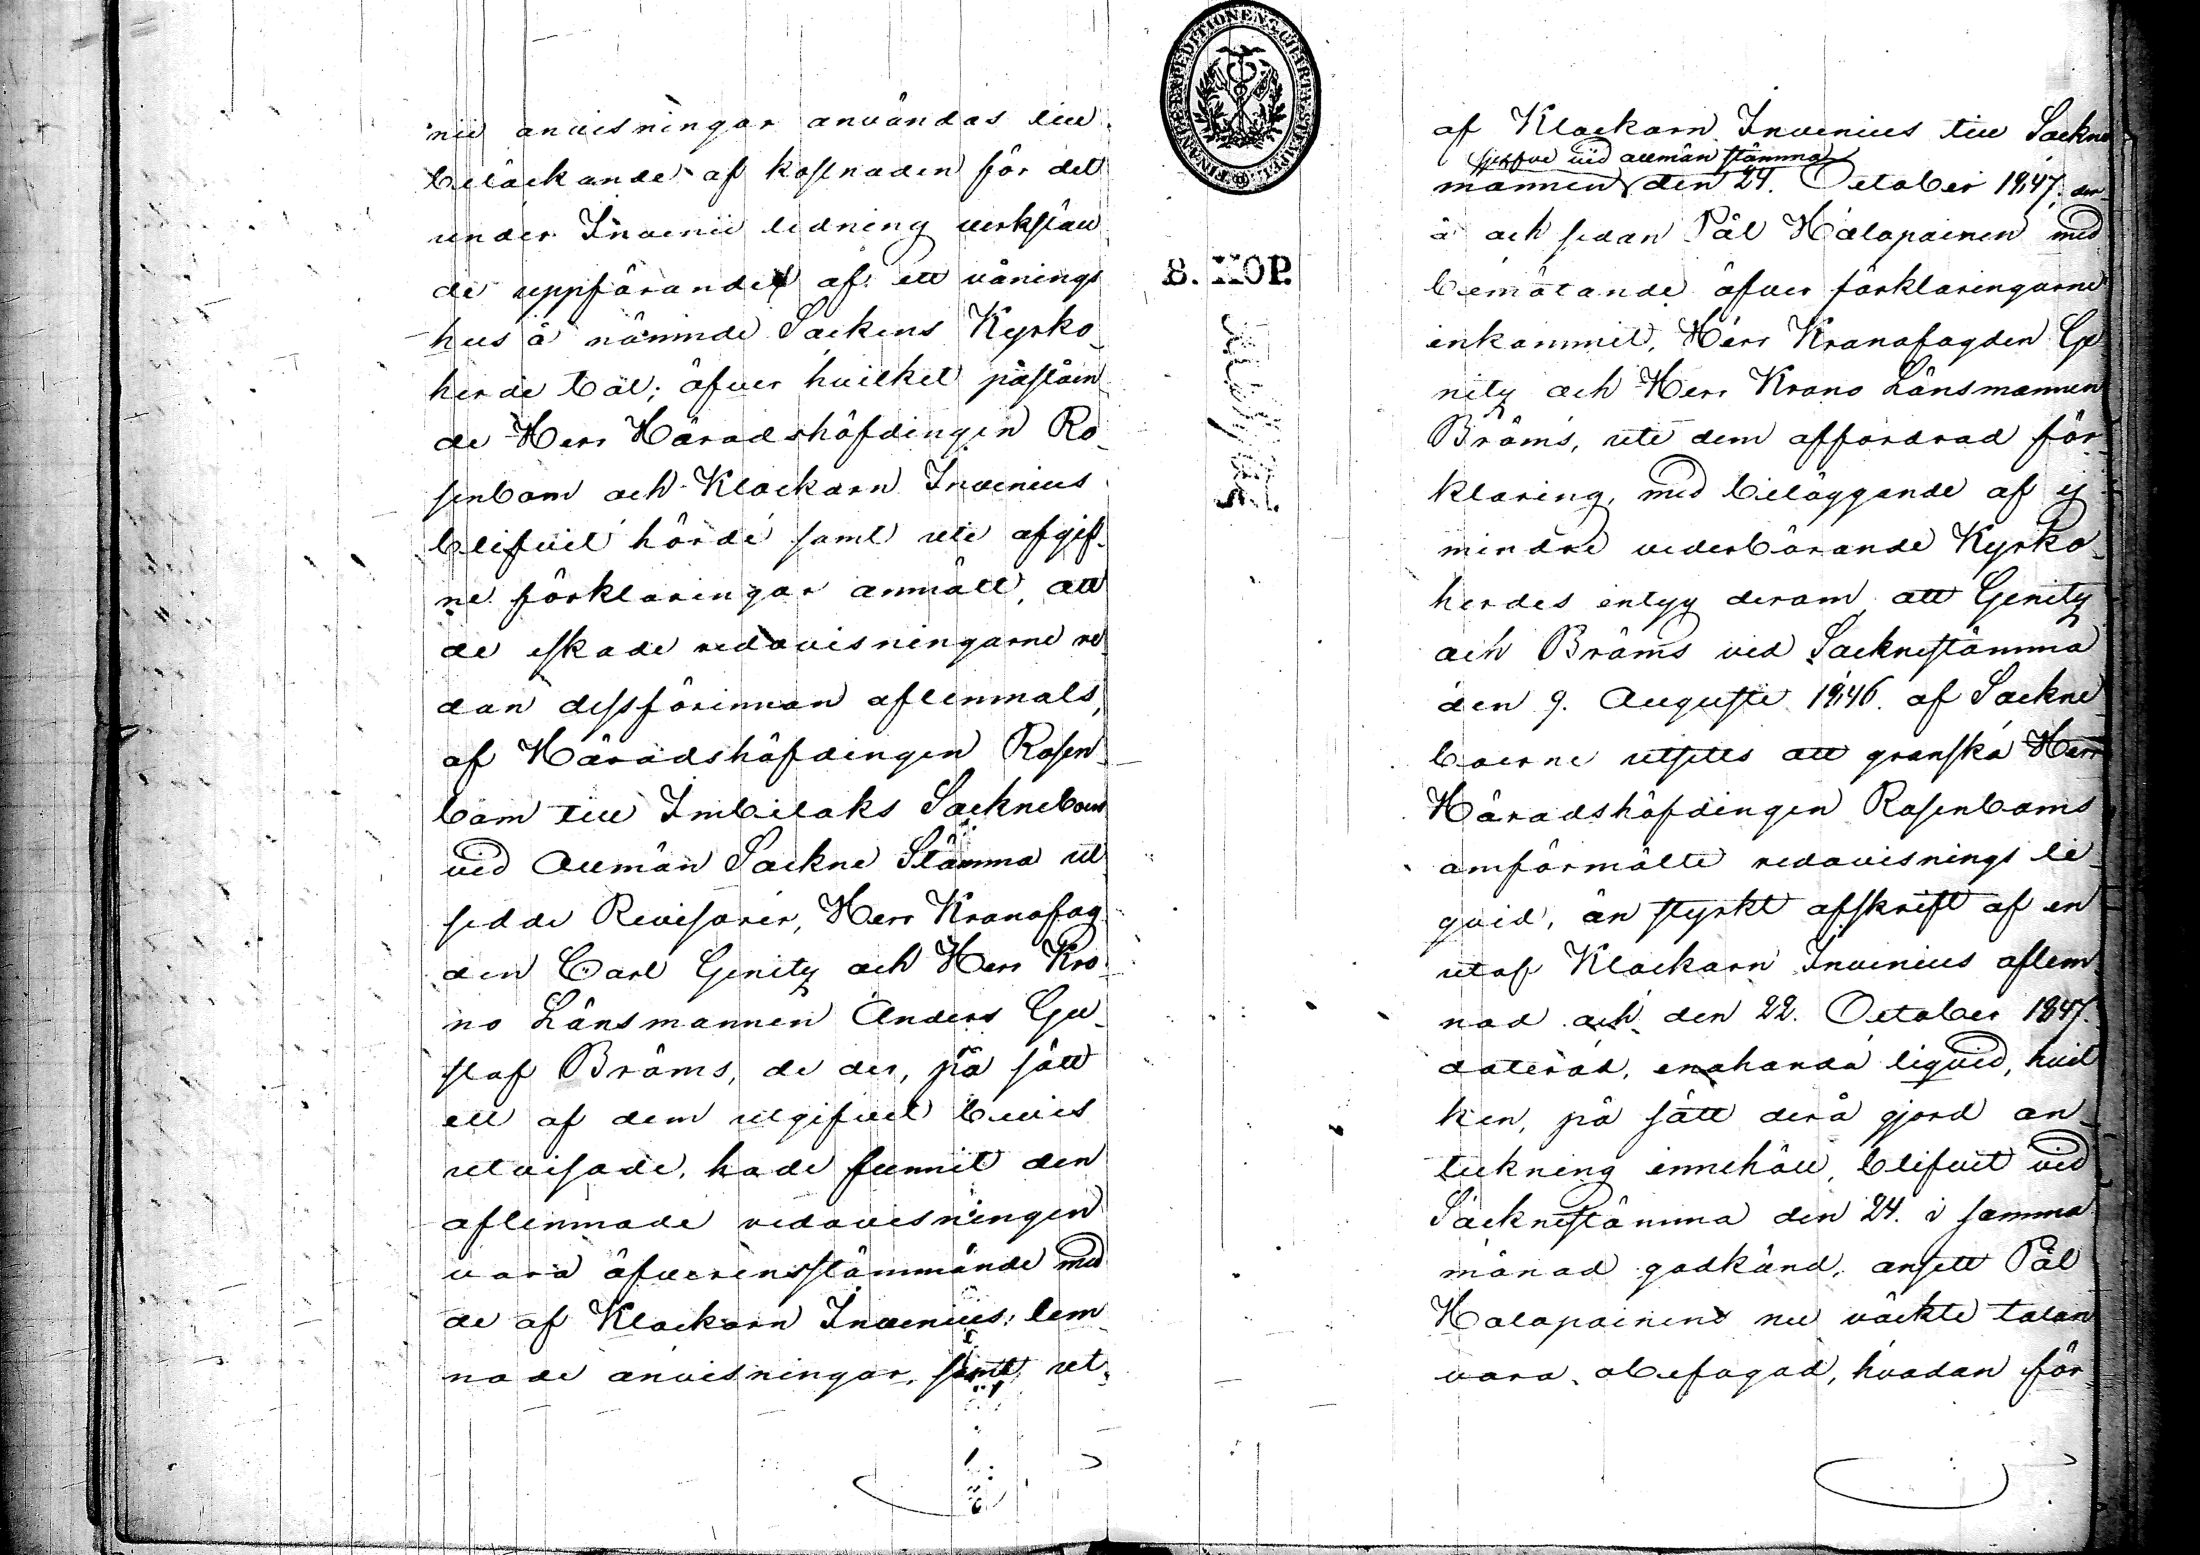 nii anvisningar användas till
betäckande af kostnaden för det
under Invenii ledning verkstäl
de uppförandet af ett vånings
hus å nämnde Sockens Kyrko-
herde bol; öfver hvilket påståen
de Herr Häradshöfdingen Ro-
senbom och Klockarn Invenius
blifvit hörde samt uti afgif-
ne förklaringar anmält, att
de eskade redovisningarne re
dan dessförinnan aflemnats,
af Häradshöfdingen Rosen-
bom till Imbilaks Sockneboer
vid Allmän Sockne Stämma ut
sedde Revisorer, Herr Kronofog
den Carl Genitz och Herr Kro
no Länsmannen Anders Gu-
staf Bräms, de der, på sätt
ett af dem utgifvet bevis
utvisade, hade funnit den
aflemnade redovisningen
vara öfverensstämmande med
de af Klockarn Invenius lem
nade anvisningar, samt ut-
FINANCE EXPEDITIONENS CHARTÆ STEMPEL
8. KOP.
af Klockarn Invenius till Sockne
sjelfve vid allmän stämma
männen den 24. October 1847. der-
å och sedan Pål Halapainen med
bemötande öfver förklaringarne
inkommit, Herr Kronofogden Ge
nitz och Herr Krono Länsmannen
Bräms, uti dem affordrad för-
klaring, med biläggande af ej
mindre vederbörande Kyrko-
herdes intyg derom att Genitz
och Bräms vid Socknestämma
den 9. Augusti 1846. af Sockne
boerne utsetts att granska Herr
Häradshöfdingen Rosenboms
omförmälte redovisnings li-
quid, än styrkt afskrift af en
utaf Klockarn Invenius aflem
nad och den 22. October 1847.
daterad, enahanda liquid, hvil
ken, på sätt derå gjord an-
teckning innehöll, blifvit vid
Socknestämma den 24. i samma
månad godkänd, ansett Pål
Halapainens nu väckte talan
vara obefogad, hvadan för-